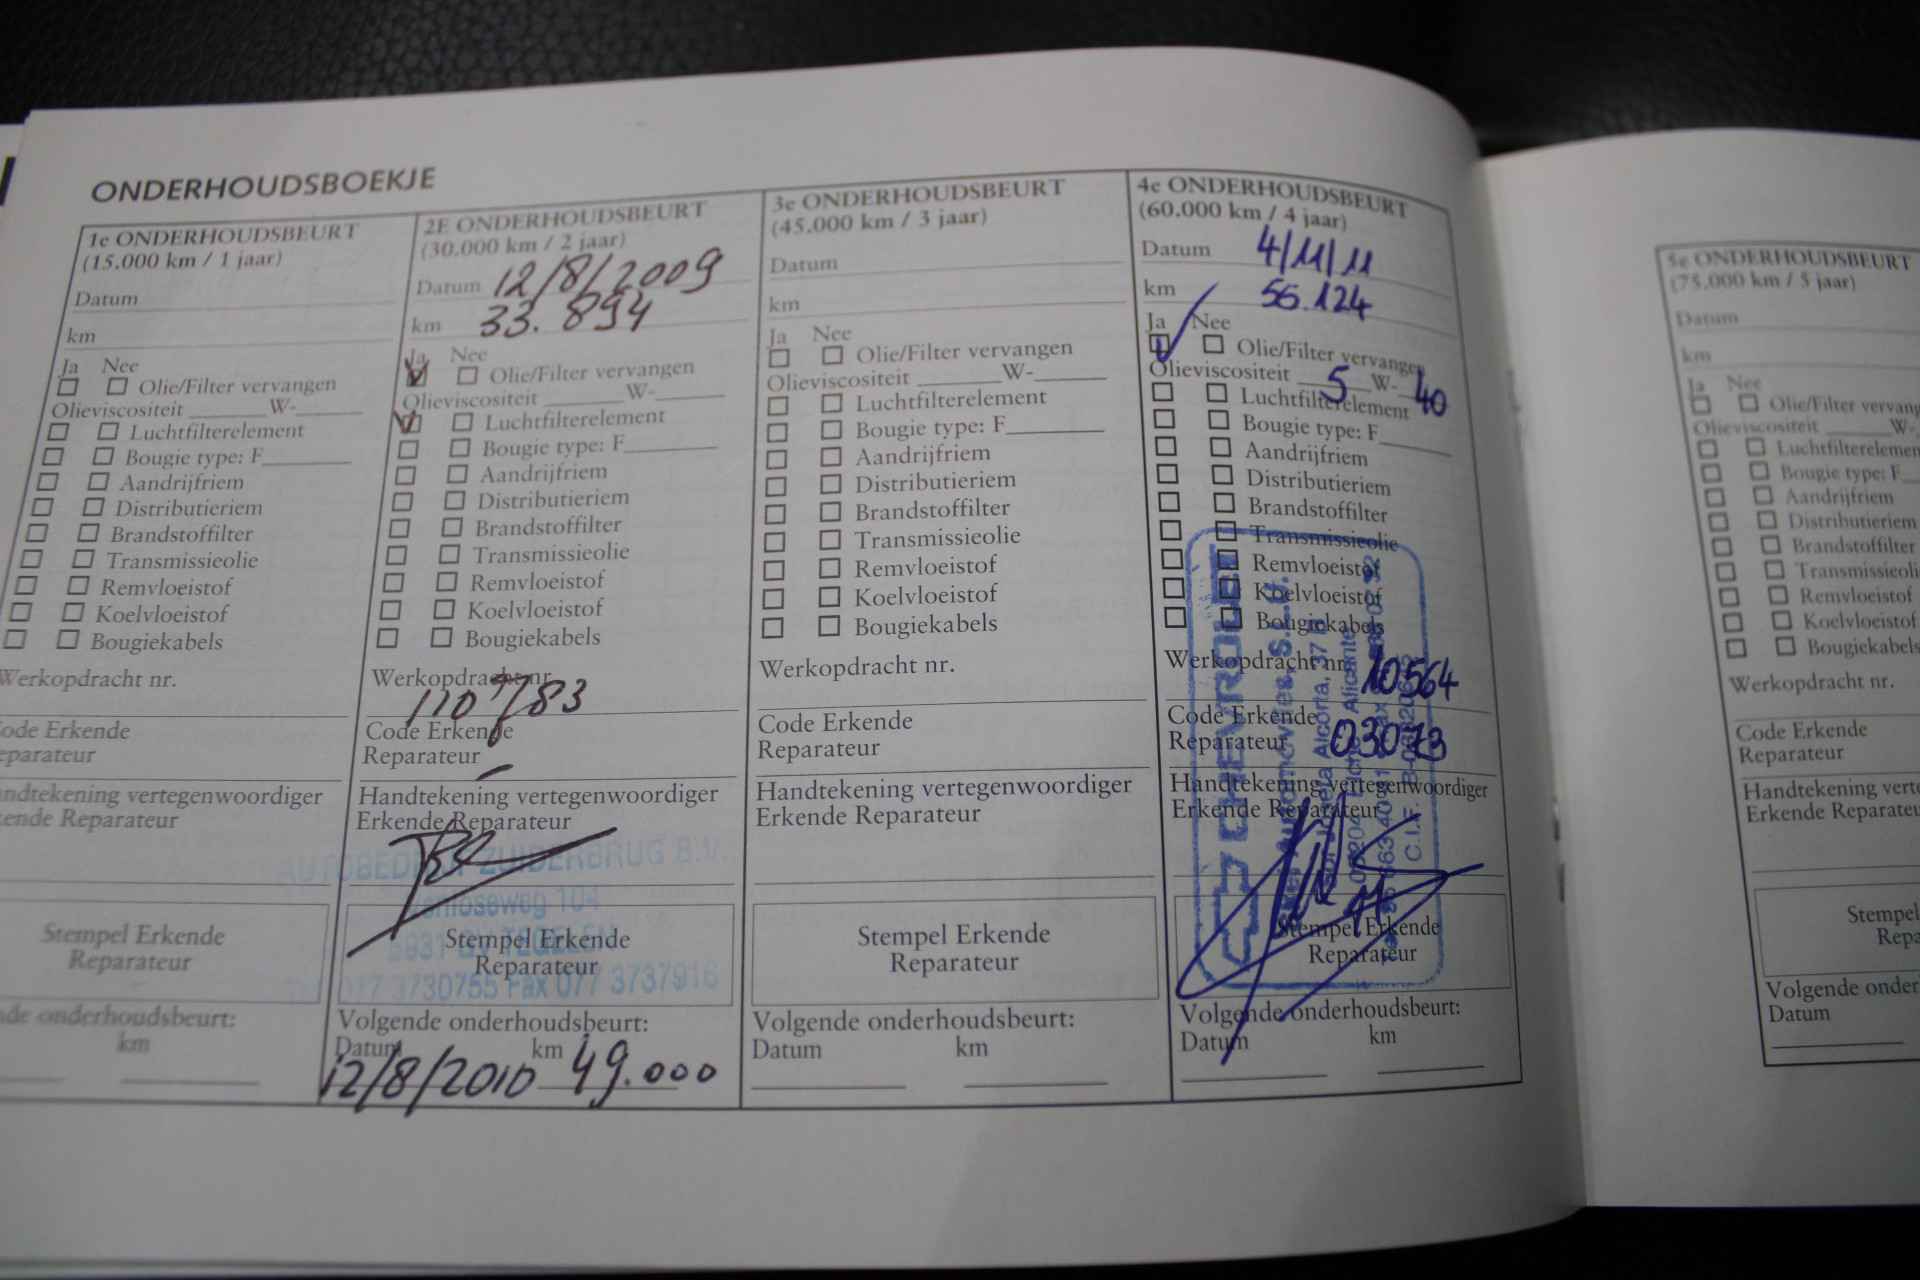 ONDERHOUDSBOEKJE
1e ONDERHOUDSBEURT
(15.000 km / 1 jaar)
Datum
km
Ja Nee
Olie/Filter vervangen
Olieviscositeit ______W-______
Luchtfilterelement
Bougie type: F______
Aandrijfriem
Distributieriem
Brandstoffilter
Transmissieolie
Remvloeistof
Koelvloeistof
Bougiekabels
Werkopdracht nr.
ode Erkende
eparateur
ndtekening vertegenwoordiger
ende Reparateur
Stempel Erkende
Reparateur
de onderhoudsbeurt:
km
2E ONDERHOUDSBEURT
(30.000 km / 2 jaar)
Datum 12/8/2009
km 33.894
Ja Nee
Olie/Filter vervangen
Olieviscositeit ______W-______
Luchtfilterelement
Bougie type: F______
Aandrijfriem
Distributieriem
Brandstoffilter
Transmissieolie
Remvloeistof
Koelvloeistof
Bougiekabels
Werkopdracht nr.
110783
Code Erkende
Reparateur
Handtekening vertegenwoordiger
Erkende Reparateur
AUTOBEDRIJF ZUIDERBRUG B.V.
Venloseweg 104
TEGELEN
077 3730755 Fax 077 3737916
Stempel Erkende
Reparateur
Volgende onderhoudsbeurt:
Datum km
12/8/2010 49.000
3e ONDERHOUDSBEURT
(45.000 km / 3 jaar)
Datum
km
Ja Nee
Olie/Filter vervangen
Olieviscositeit ______W-______
Luchtfilterelement
Bougie type: F______
Aandrijfriem
Distributieriem
Brandstoffilter
Transmissieolie
Remvloeistof
Koelvloeistof
Bougiekabels
Werkopdracht nr.
Code Erkende
Reparateur
Handtekening vertegenwoordiger
Erkende Reparateur
Stempel Erkende
Reparateur
Volgende onderhoudsbeurt:
Datum km
4e ONDERHOUDSBEURT
(60.000 km / 4 jaar)
Datum 4/11/11
km 56.124
Ja Nee
Olie/Filter vervangen
Olieviscositeit 5 W- 40
Luchtfilterelement
Bougie type: F______
Aandrijfriem
Distributieriem
Brandstoffilter
Transmissieolie
Remvloeistof
Koelvloeistof
Bougiekabels
Werkopdracht nr. 10564
Code Erkende
Reparateur 03073
Handtekening vertegenwoordiger
Erkende Reparateur
CHEVROLET
S.L.U.
Alcoria, 37
Alicante
C.I.F.
Stempel Erkende
Reparateur
Volgende onderhoudsbeurt:
Datum km
5e ONDERHOUDSBEURT
(75.000 km / 5 jaar)
Datum
km
Ja Nee
Olie/Filter vervang
Olieviscositeit ______W-
Luchtfilterelemen
Bougie type: F
Aandrijfriem
Distributieriem
Brandstoffilter
Transmissieoli
Remvloeistof
Koelvloeistof
Bougiekabels
Werkopdracht nr.
Code Erkende
Reparateur
Handtekening verte
Erkende Reparateu
Stempel
Repa
Volgende onder
Datum